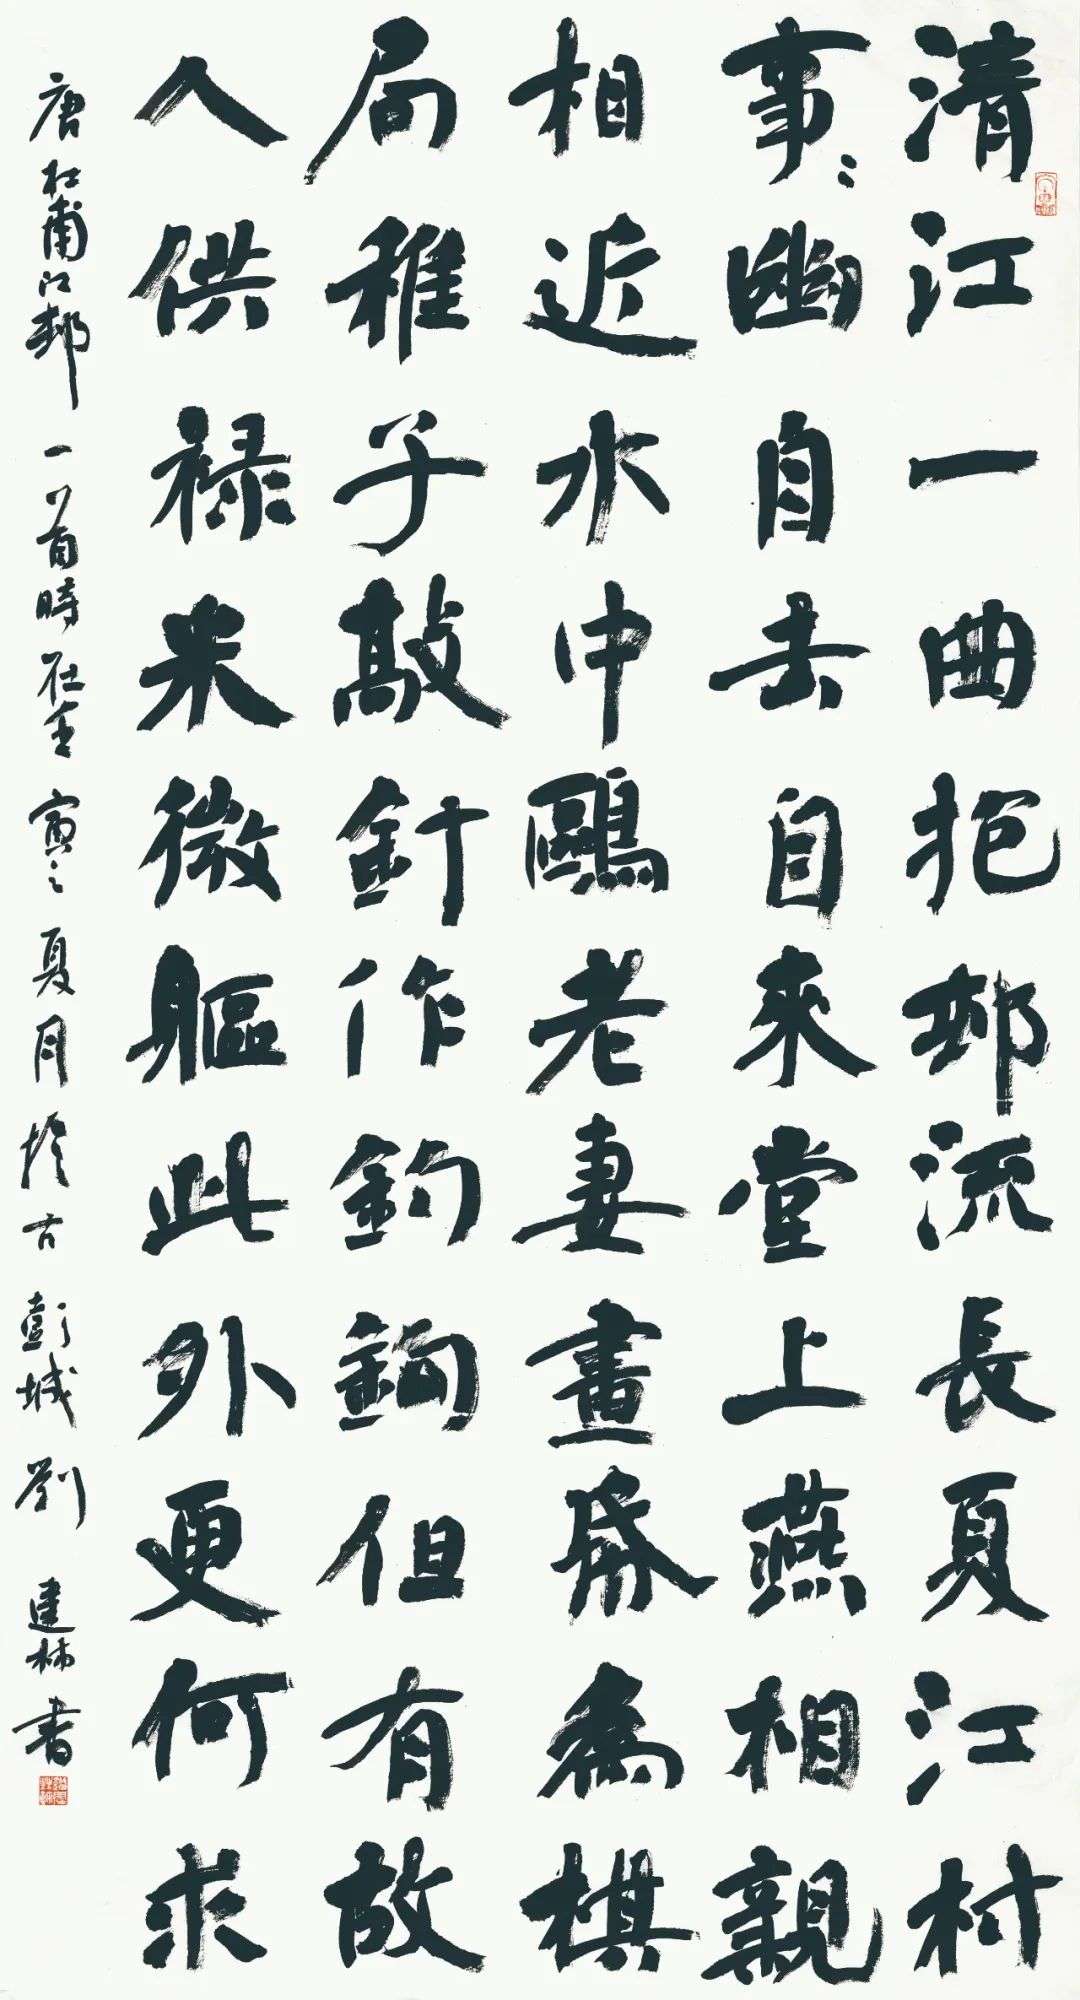 清江一曲抱邨流長夏江村
事〻幽自去自來堂上燕相親
相近水中鷗老妻畫帋為棋
局稚子敲針作釣鉤但有故
人供祿米微軀此外更何求
唐杜甫江邨一首時在壬寅之夏月於古彭城劉建林書